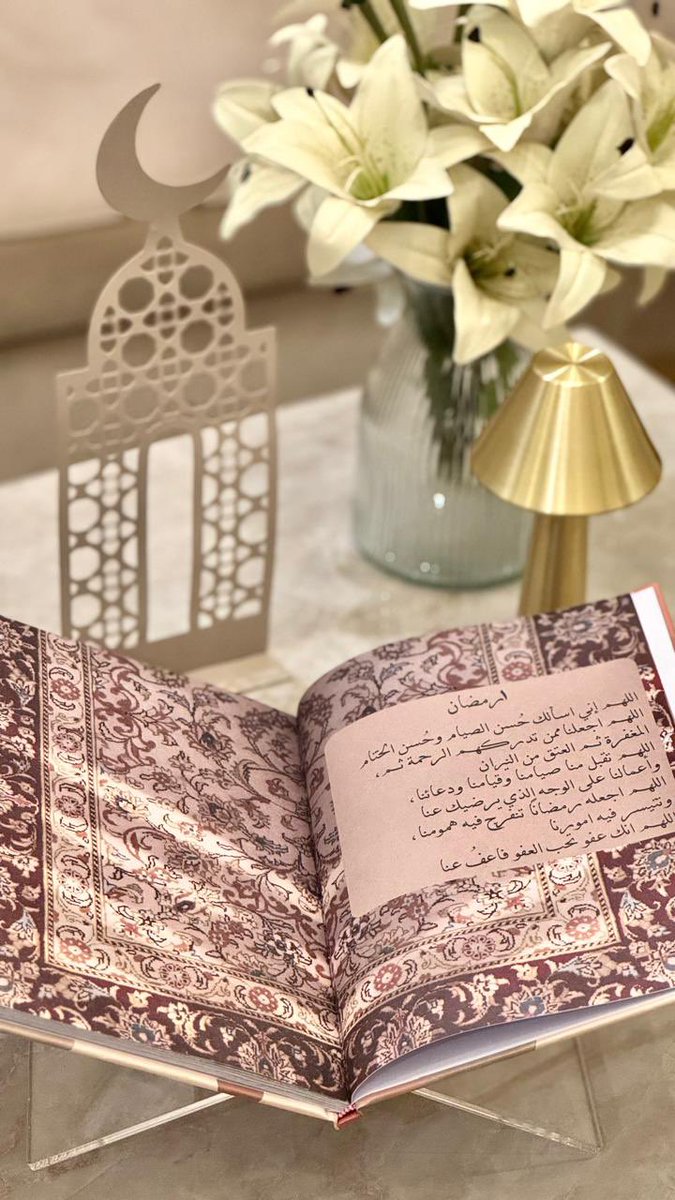 رمضان
اللهم إني اسألك حُسن الصيام وحُسن الختام
اللهم اجعلنا ممن تدركهم الرحمة ثم
المغفرة ثم العتق من النيران،
اللهم تقبل منا صيامنا وقيامنا ودعائنا
وأعمالنا على الوجه الذي يرضيك عنا،
اللهم اجعله رمضاناً تنفرج فيه همومنا
وتتيسر فيه امورنا،
اللهم انك عفو تحب العفو فاعفُ عنا